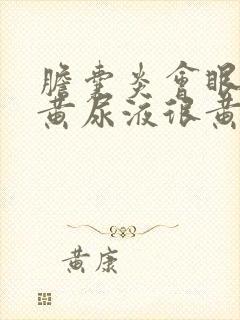 膽囊炎會眼
黃尿液很黃
黃康